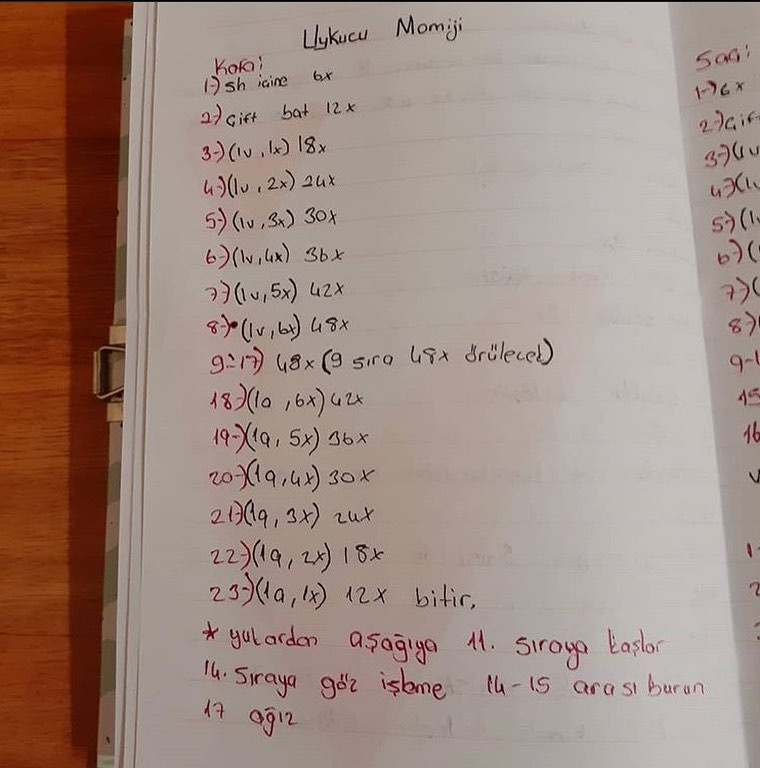 Uykucu Momiji
Kafa:
1-) Sh içine 6x
2-) Çift bat 12x
3-) (1v, 1x) 18x
4-) (1v, 2x) 24x
5-) (1v, 3x) 30x
6-) (1v, 4x) 36x
7-) (1v, 5x) 42x
8-) (1v, 6x) 48x
9-17) 48x (9 sıra 48x örülecek)
18-) (1a, 6x) 42x
19-) (1a, 5x) 36x
20-) (1a, 4x) 30x
21-) (1a, 3x) 24x
22-) (1a, 2x) 18x
23-) (1a, 1x) 12x bitir.
* yukardan aşağıya 11. sıraya kaşlar
14. sıraya göz işleme 14-15 arası burun
17 ağız
Saç:
1-) 6x
2-) Çif
3-) (1v
4-) (1v
5-) (1v
6-) (
7-) (
8-)
9-1
15
16